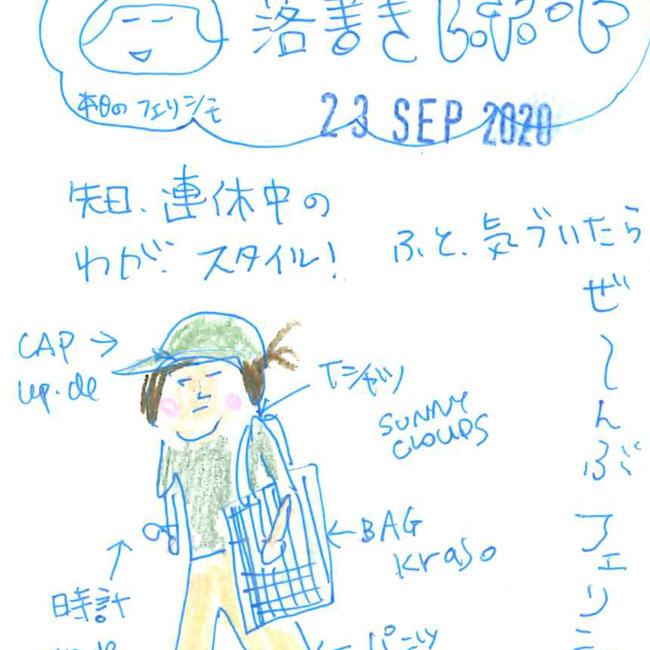 落書きレポート
本日のフェリシモ
23 SEP 2020
先日、連休中の
わが、スタイル!
ふと、気づいたら
ぜ〜んぶ フェリシ
CAP →
up.de
Tシャツ
SUNNY
CLOUDS
←BAG
kraso
時計
←パンツ